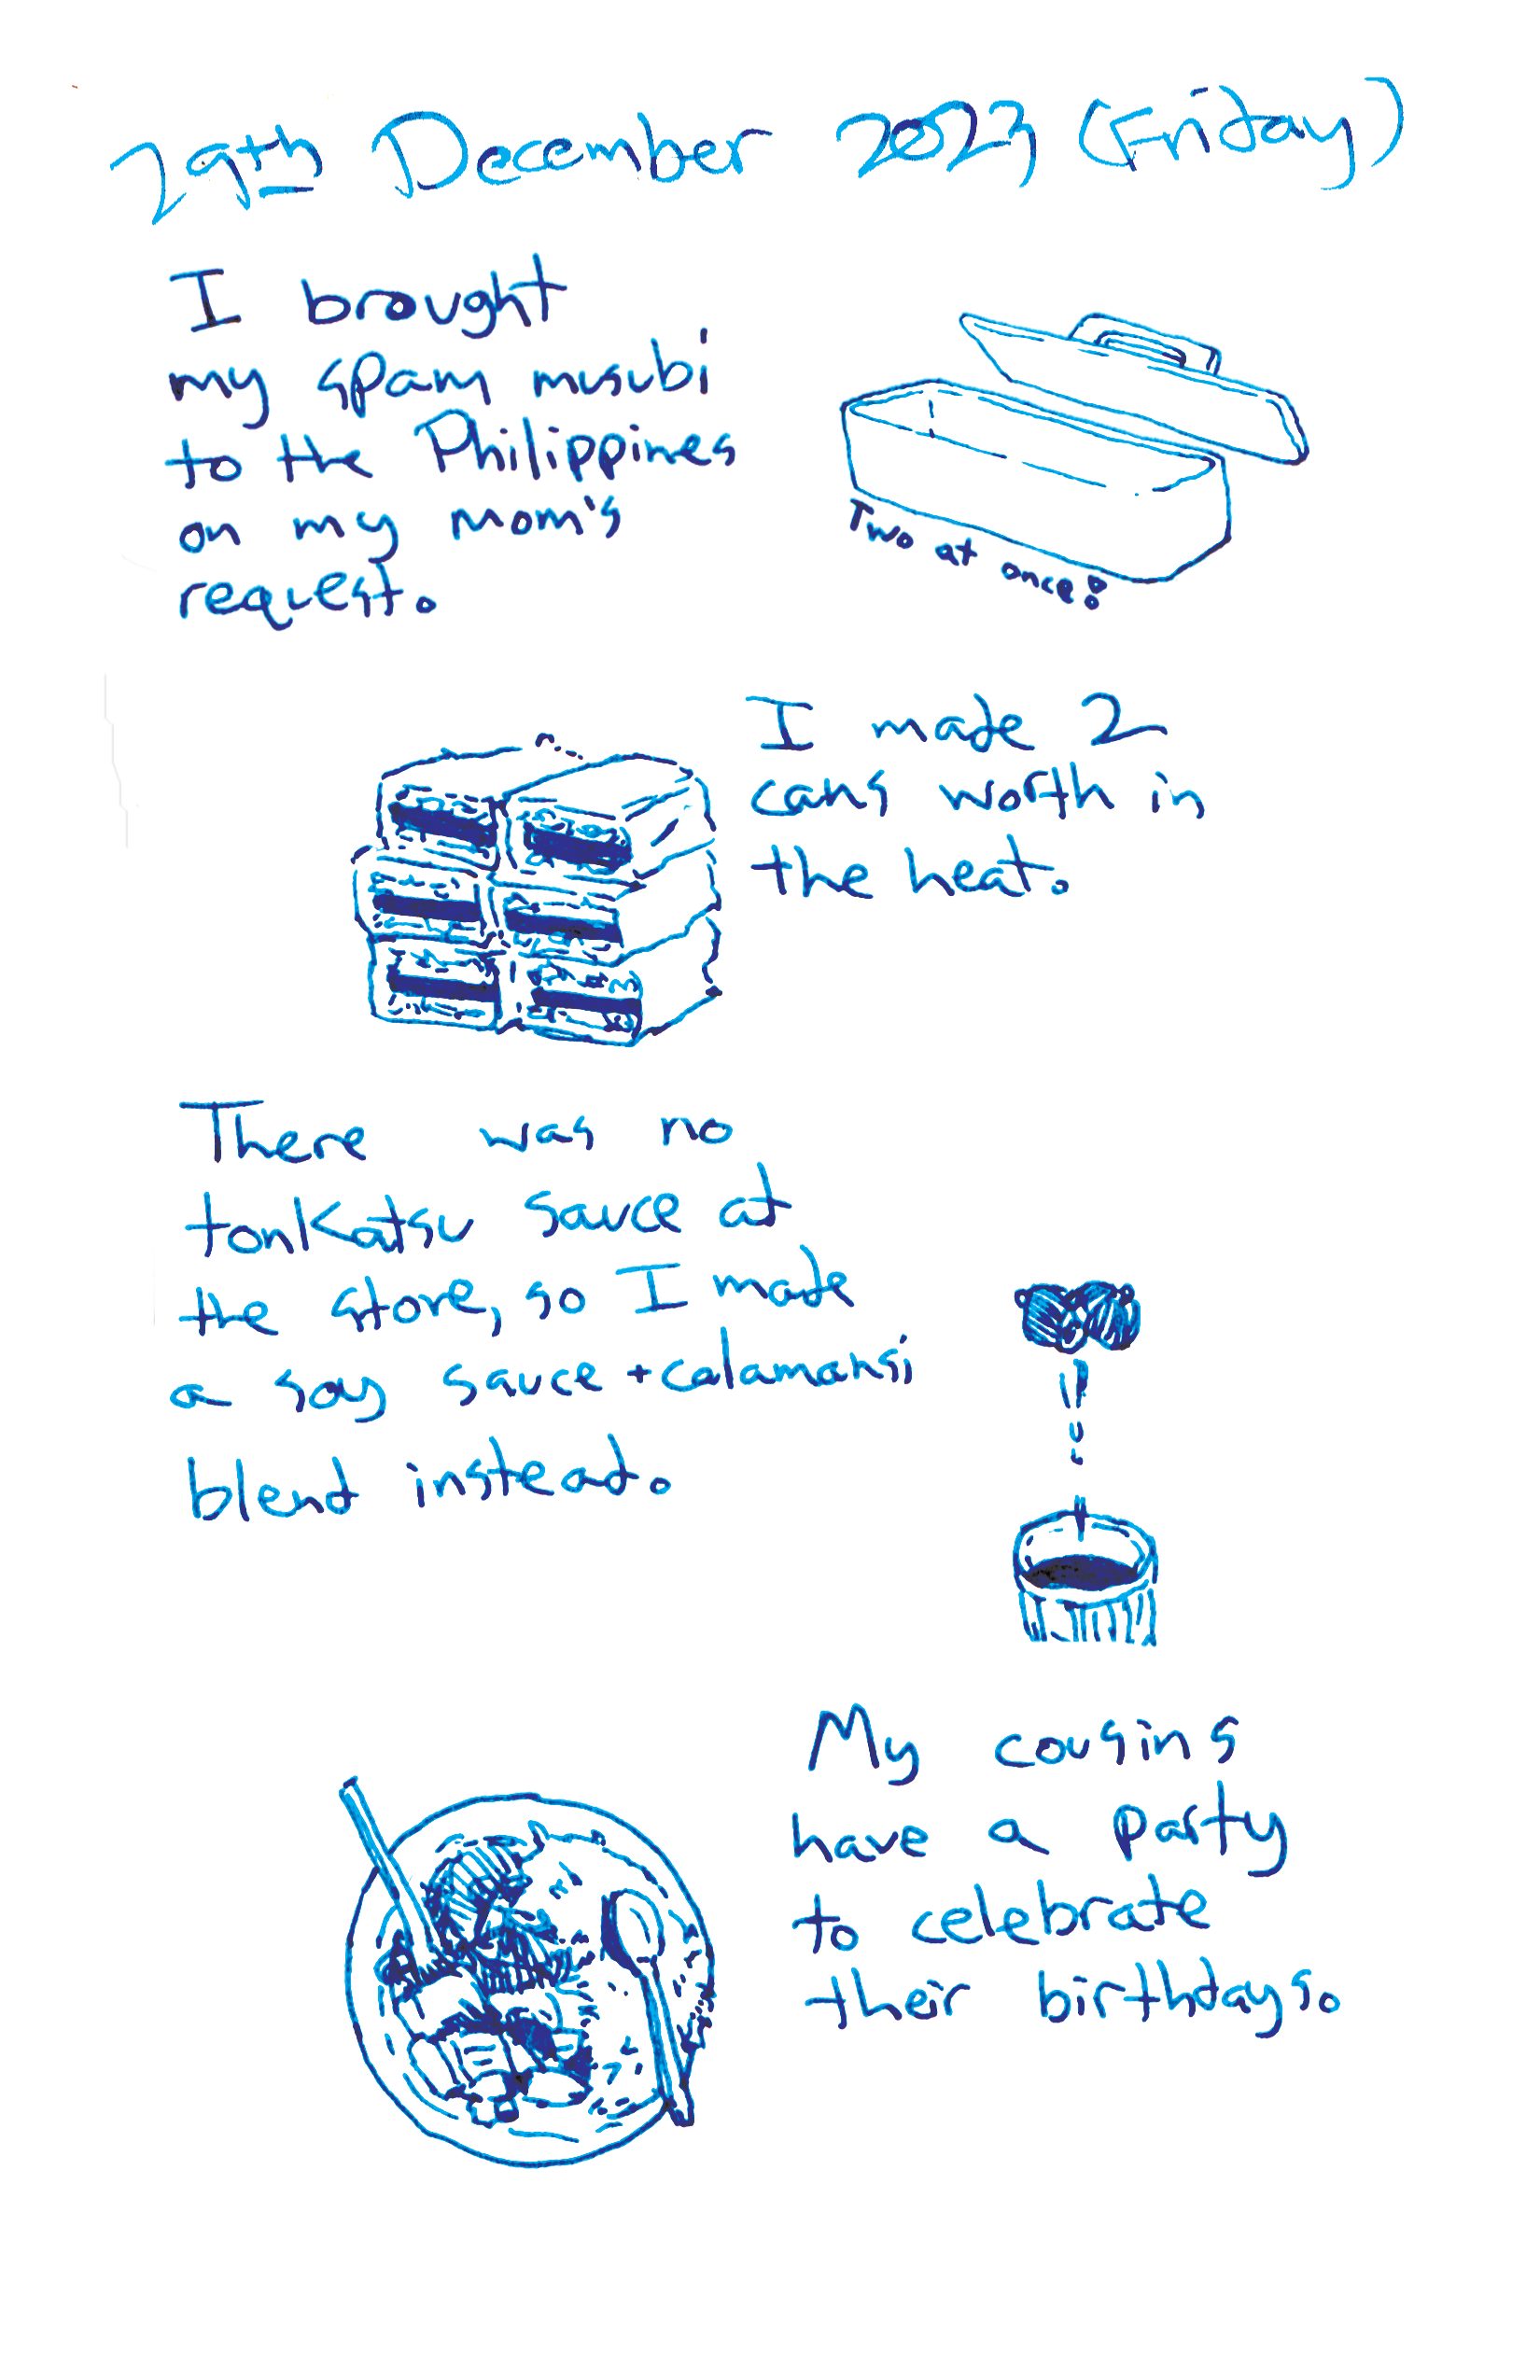 29th December 2023 (Friday)
I brought
my spam musubi
to the Philippines
on my mom's
request.
Two at once!
I made 2
cans worth in
the heat.
There was no
tonkatsu sauce at
the store, so I made
a soy sauce + calamansi
blend instead.
My cousins
have a party
to celebrate
their birthdays.